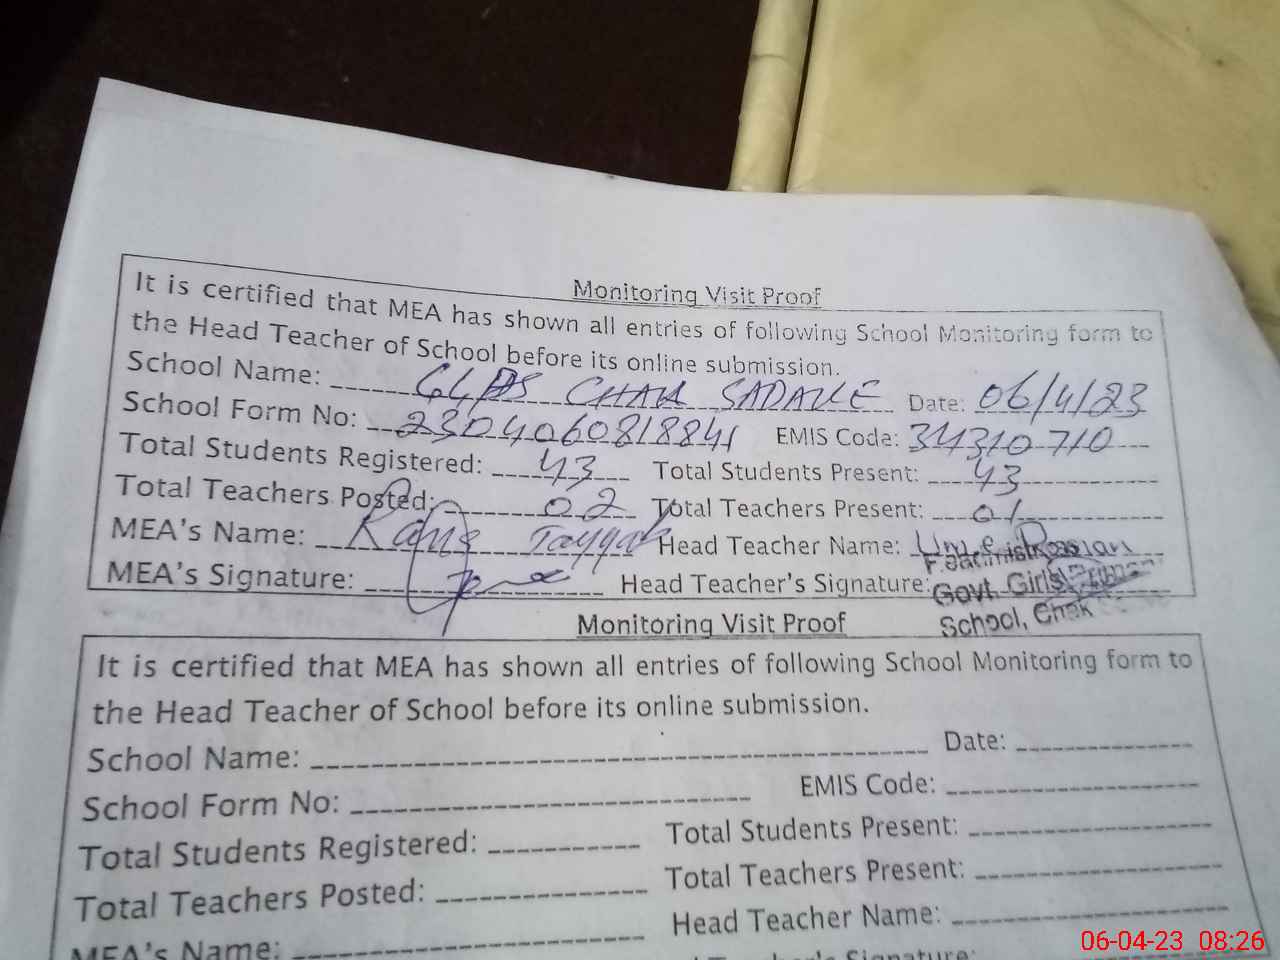 Monitoring Visit Proof
It is certified that MEA has shown all entries of following School Monitoring form to
the Head Teacher of School before its online submission.
School Name: GGPS CHAK SADAULE Date: 06/4/23
School Form No: 2304060818841 EMIS Code: 34310710
Total Students Registered: 43 Total Students Present: 43
Total Teachers Posted: 02 Total Teachers Present: 01
MEA's Name: Rana Tayyab Head Teacher Name: Ume
MEA's Signature: Head Teacher's Signature:
Govt. Girls
School, Chak
Monitoring Visit Proof
It is certified that MEA has shown all entries of following School Monitoring form to
the Head Teacher of School before its online submission.
School Name: Date:
School Form No: EMIS Code:
Total Students Registered: Total Students Present:
Total Teachers Posted: Total Teachers Present:
MEA's Name: Head Teacher Name:
Teacher's Signature:
06-04-23 08:26